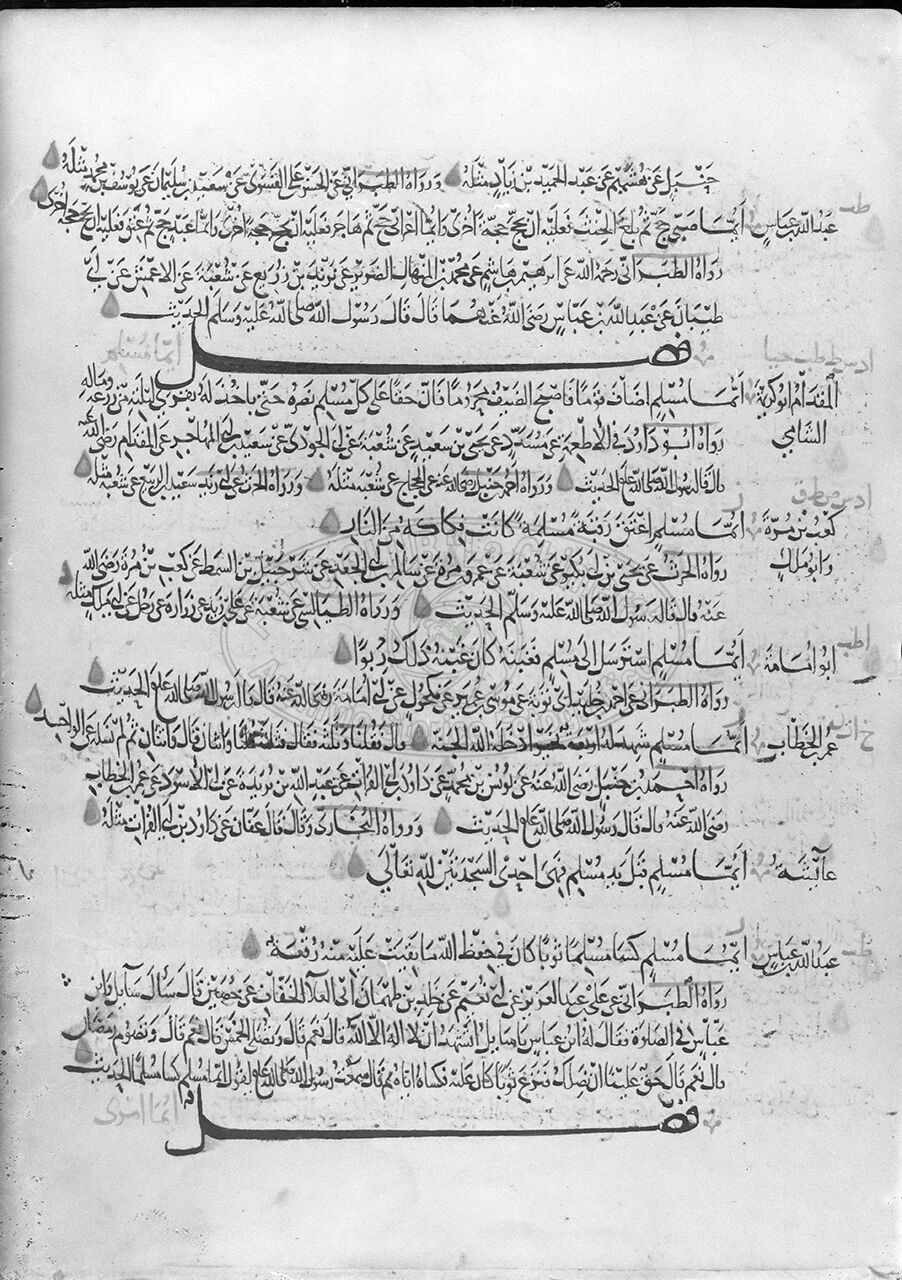 حنبل عن هشيم عن عبد الحميد بن زياد مثله ورواه الطبراني عن الحسن بن علي الفسوي عن سعيد بن سليمان عن يوسف بن محمد مثله
طب
عبد الله بن عباس أيما صبي حج ثم بلغ الحنث فعليه أن يحج حجة أخرى وأيما أعرابي حج ثم هاجر فعليه أن يحج حجة أخرى وأيما عبد حج ثم عتق فعليه أن يحج حجة أخرى
رواه الطبراني رحمه الله عن ابرهيم بن هاشم عن محمد بن المنهال الضرير عن يزيد بن زريع عن شعبة عن الاعمش عن أبي
ظبيان عن عبد الله بن عباس رضي الله عنهما قال قال رسول الله صلى الله عليه وسلم الحديث
فصل
أيما مسلم
المقدام ابو كريمة أيما مسلم اضاف قوما فاصبح الضيف محروما قال حقا على كل مسلم نصره حتى ياخذ له بقرى ليلته من زرعه وماله
الشامي رواه ابو داود في الاطعمة عن مسدد عن يحيى بن سعيد عن شعبة عن أبي الجودي عن سعيد بن أبي المهاجر عن المقدام رضي الله عنه
قال قال رسول الله صلى الله عليه الحديث ورواه احمد بن حنبل رضي الله عنه عن الحجاج عن شعبة مثله ورواه الحرث عن أبي زيد سعيد بن الربيع عن شعبة مثله
كعب بن مرة أيما مسلم اعتق رقبة مسلمة كانت فكاكه من النار
وابو ملك رواه الحرث عن يحيى بن أبي بكير عن شعبة عن عمرو بن مرة عن سالم بن أبي الجعد عن شرحبيل بن السمط عن كعب بن مرة رضي الله
عنه قال قال رسول الله صلى الله عليه وسلم الحديث ورواه الطيالسي عن شعبة عن علي بن زيد عن زرارة عن رجل عن أبي ملك مثله
طب
ابو امامة أيما مسلم استرسل الى مسلم فغبنه كان غبنه ذلك ربوا
رواه الطبراني عن احمد بن خليد عن أبي توبة عن موسى بن عمير عن مكحول عن أبي امامة رضي الله عنه قال قال رسول الله صلى الله عليه الحديث
عمر بن الخطاب أيما مسلم شهد له اربعة بخير ادخله الله الجنة قال فقلنا وثلثة فقال وثلثة فقلنا واثنان قال واثنان ثم لم نسله عن الواحد
رواه احمد بن حنبل رضي الله عنه عن يونس بن محمد عن داود بن أبي الفرات عن عبد الله بن بريدة عن أبي الاسود عن عمر بن الخطاب
رضي الله عنه قال قال رسول الله صلى الله عليه الحديث ورواه البخاري وقال قال عفان عن داود بن أبي الفرات مثله
عائشة أيما مسلم قبل يد مسلم فهي احدى السجدتين لله تعالى
طب
عبد الله بن عباس أيما مسلم كسا مسلما ثوبا كان في حفظ الله ما بقيت عليه منه رقعة
رواه الطبراني عن علي بن عبد العزيز عن أبي نعيم عن خالد بن طهمان أبي العلا الخفاف عن حصين قال سأل سائل وابن
عباس في الصلوة فقال له ابن عباس يا سايل اتشهد ان لا اله الا الله قال نعم قال وتصلي الخمس قال نعم قال وتصوم رمضان
قال نعم قال حق علينا ان نصلك فنزع ثوبا كان عليه فكساه اياه ثم قال سمعت رسول الله صلى الله عليه يقول أيما مسلم كسا مسلما الحديث
فصل
أيما امرئ